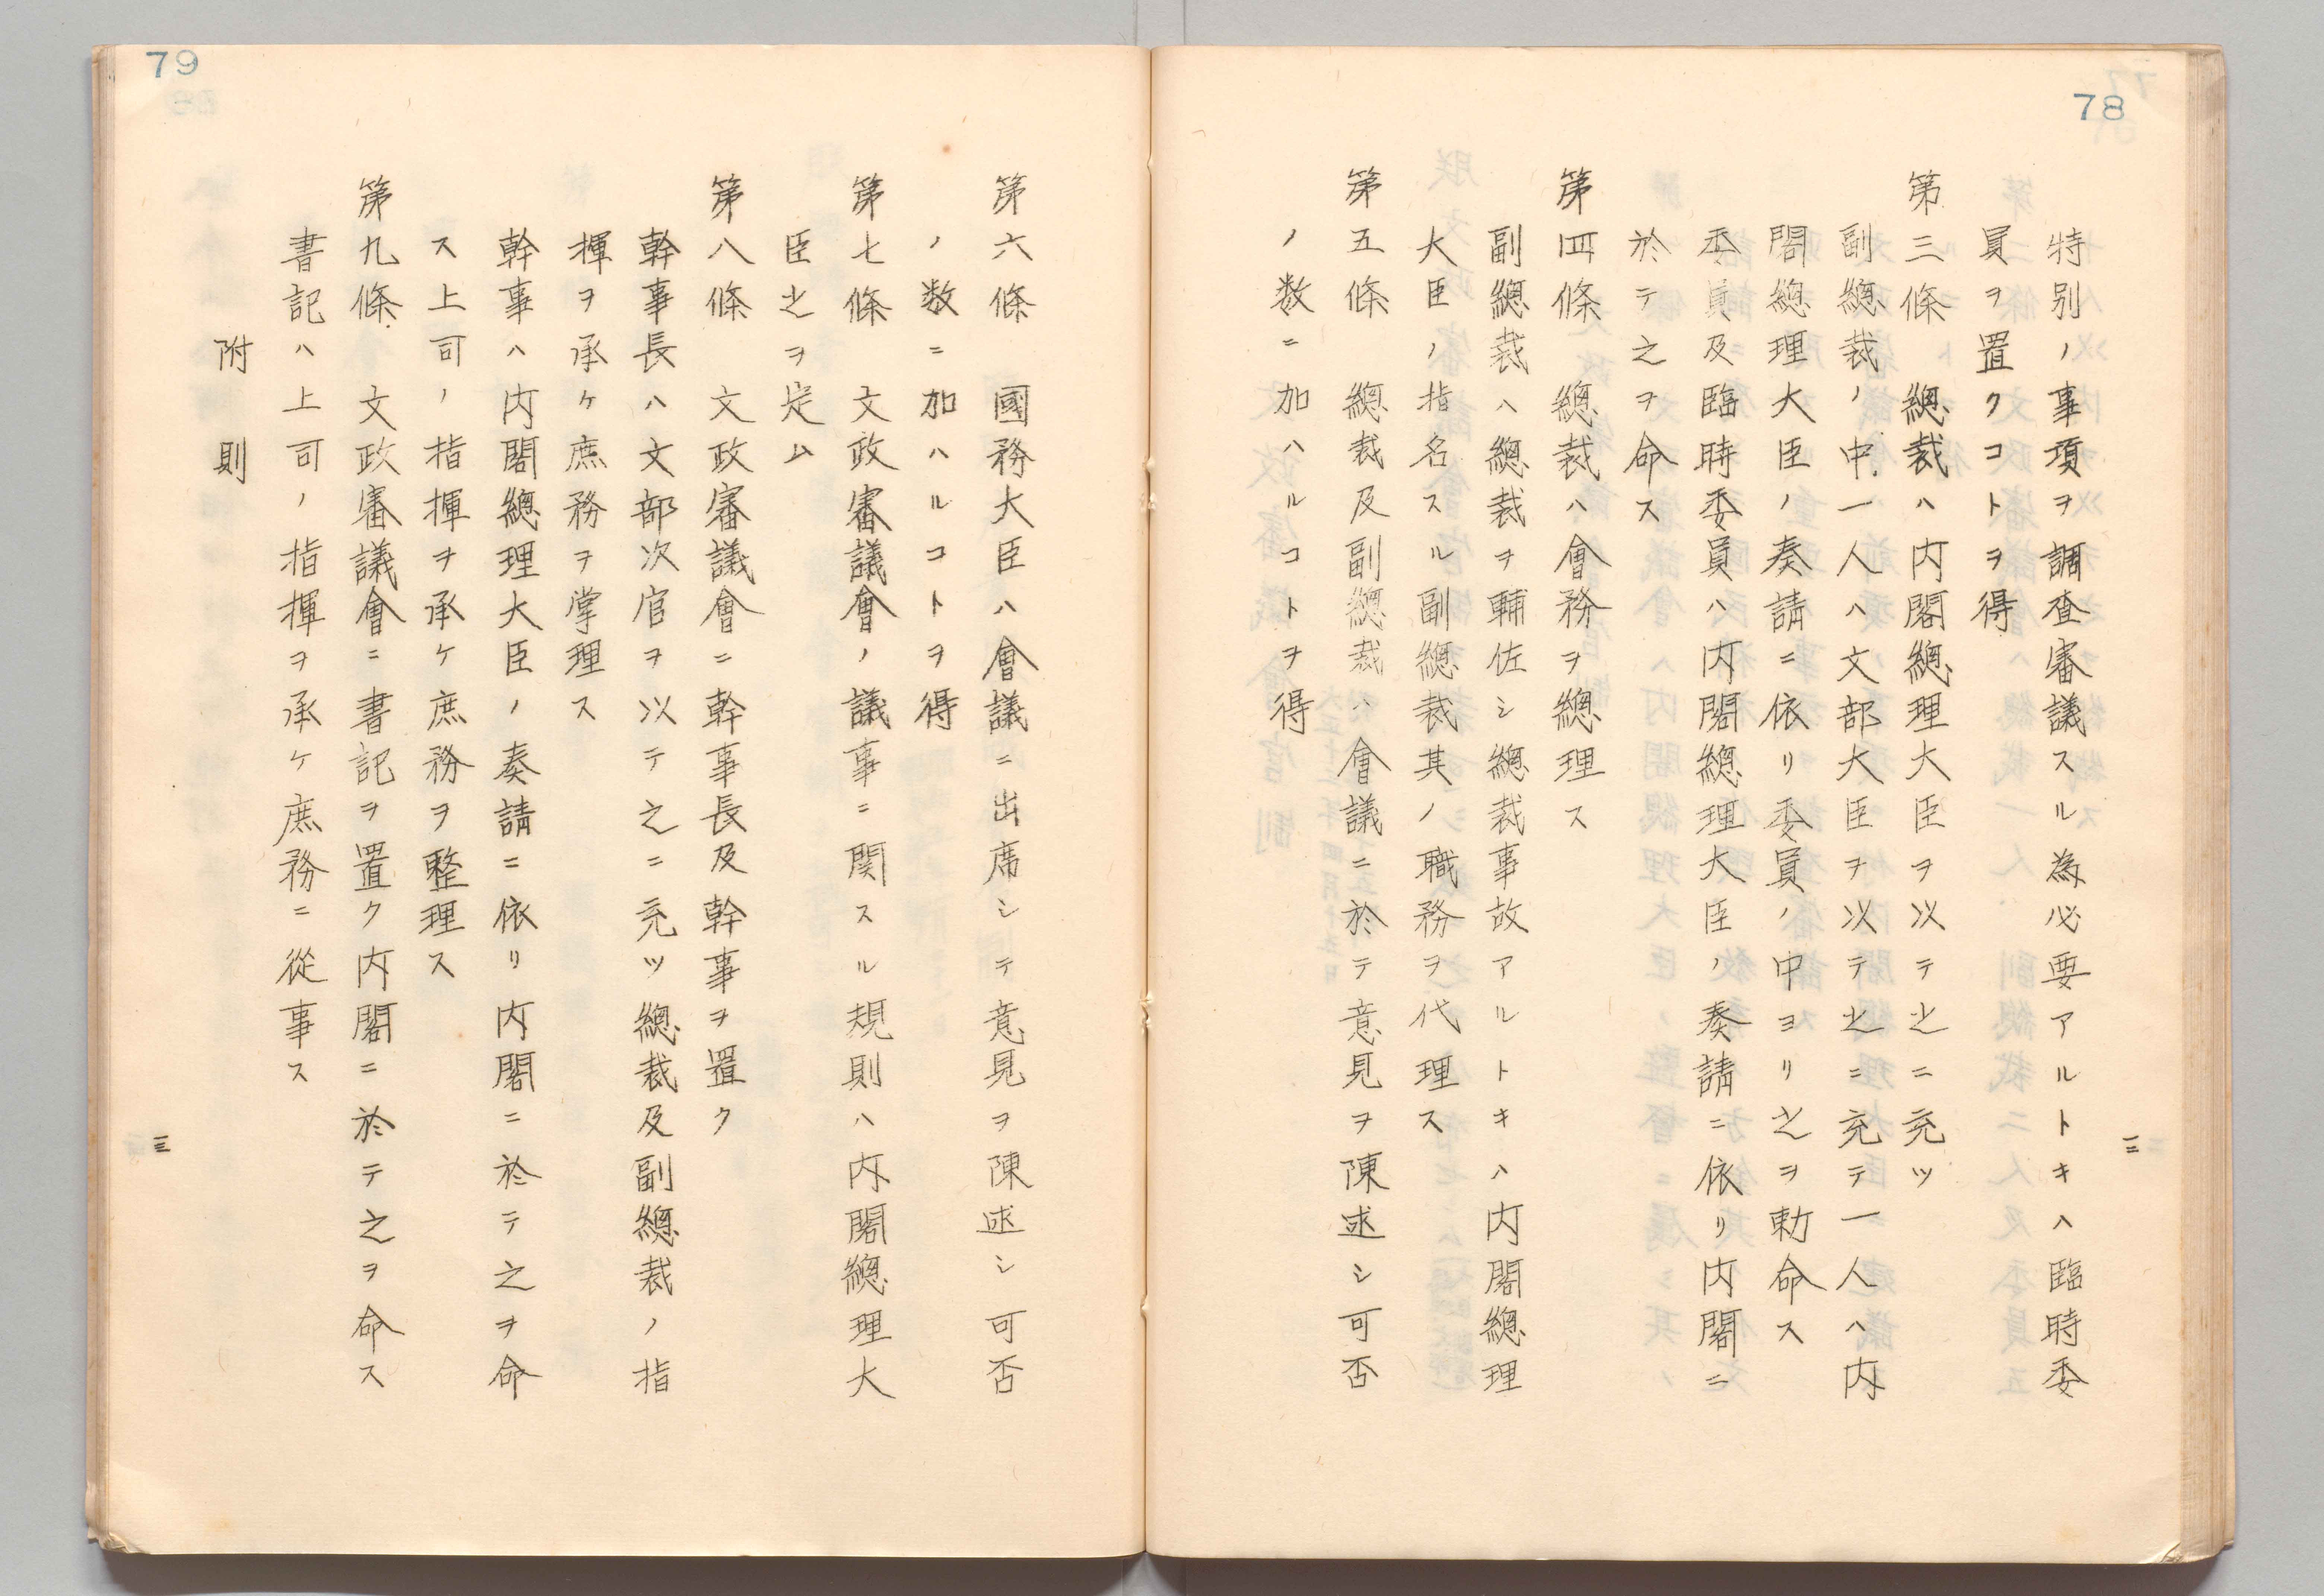 78
特別ノ事項ヲ調査審議スル為必要アルトキハ臨時委
員ヲ置クコトヲ得
第三條　總裁ハ内閣總理大臣ヲ以テ之ニ充ツ
副總裁ノ中一人ハ文部大臣ヲ以テ之ニ充テ一人ハ内
閣總理大臣ノ奏請ニ依リ委員ノ中ヨリ之ヲ勅命ス
委員及臨時委員ハ内閣總理大臣ノ奏請ニ依リ内閣ニ
於テ之ヲ命ス
第四條　總裁ハ會務ヲ總理ス
副總裁ハ總裁ヲ輔佐シ總裁事故アルトキハ内閣總理
大臣ノ指名スル副總裁其ノ職務ヲ代理ス
第五條　總裁及副總裁ハ會議ニ於テ意見ヲ陳述シ可否
ノ数ニ加ハルコトヲ得
二
79
第六條　國務大臣ハ會議ニ出席シテ意見ヲ陳述シ可否
ノ数ニ加ハルコトヲ得
第七條　文政審議會ノ議事ニ関スル規則ハ内閣總理大
臣之ヲ定ム
第八條　文政審議會ニ幹事長及幹事ヲ置ク
幹事長ハ文部次官ヲ以テ之ニ充ツ總裁及副總裁ノ指
揮ヲ承ケ庶務ヲ掌理ス
幹事ハ内閣總理大臣ノ奏請ニ依リ内閣ニ於テ之ヲ命
ス上司ノ指揮ヲ承ケ庶務ヲ整理ス
第九條　文政審議會ニ書記ヲ置ク内閣ニ於テ之ヲ命ス
書記ハ上司ノ指揮ヲ承ケ庶務ニ從事ス
附則
三